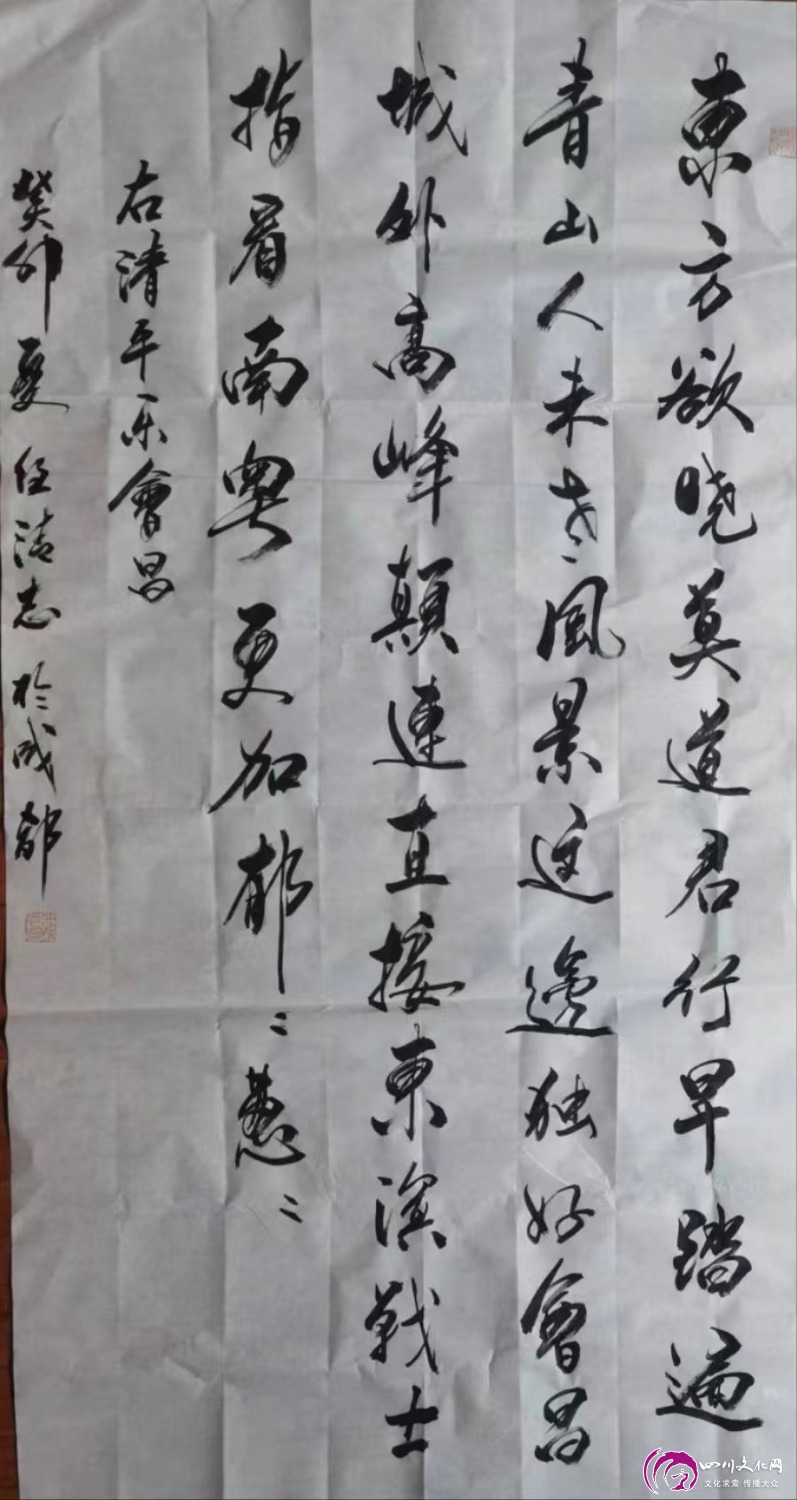 東方欲晓莫道君行早踏遍
青山人未老風景这邊独好會昌
城外高峰顛連直接東溟戰士
指看南粤更加郁〻葱〻
右清平乐會昌
癸卯夏 任清志 於成都
四川文化网
文化求索 传播大众